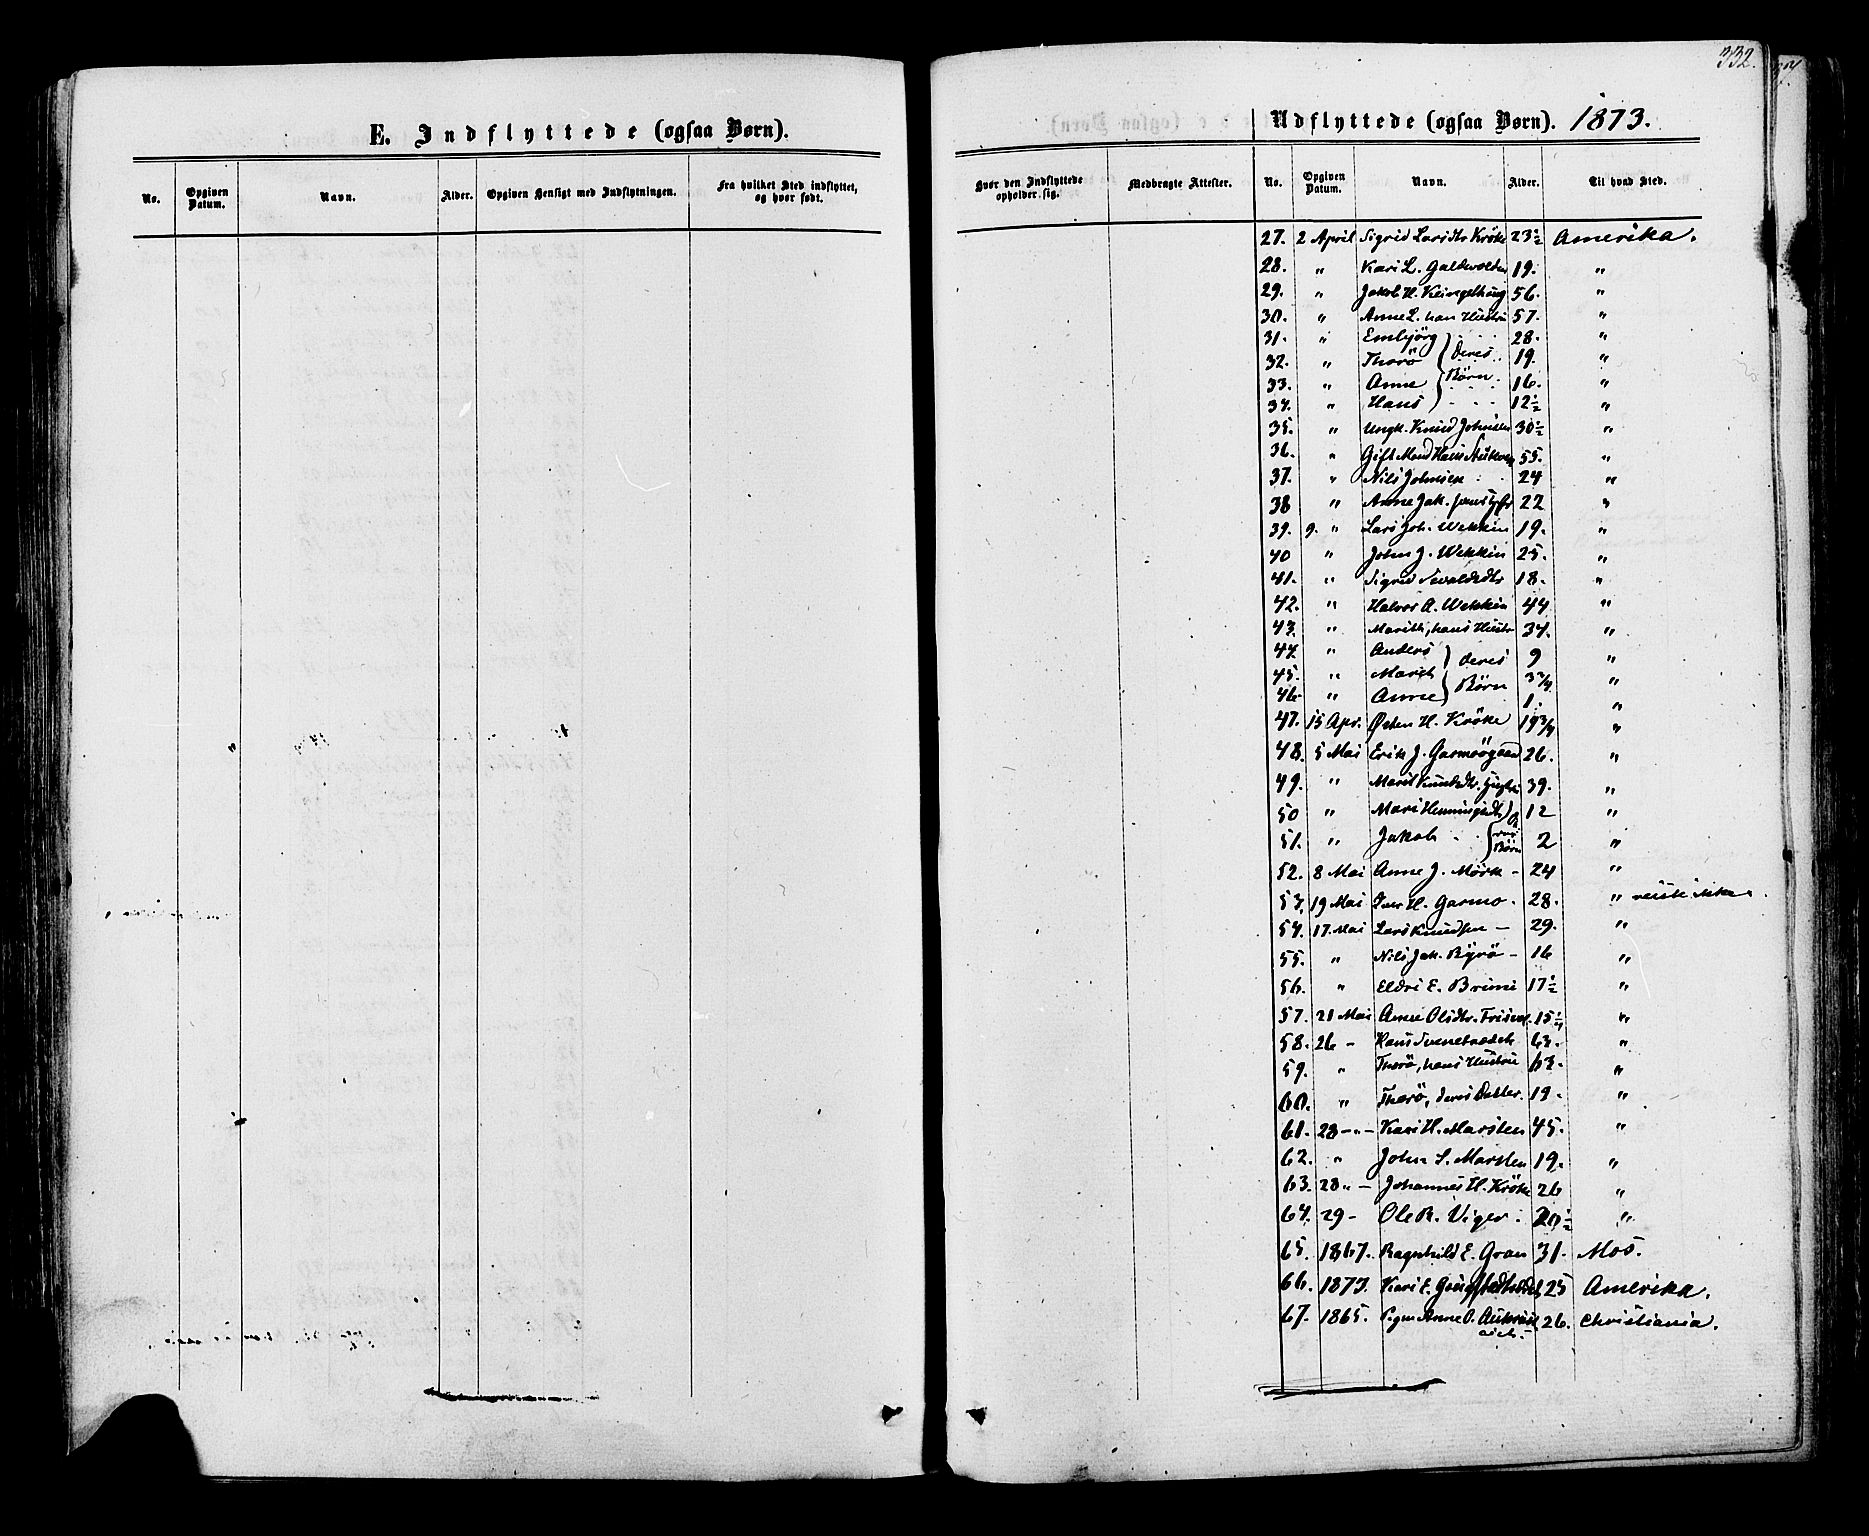 332.
E. Indflyttede (ogsaa Børn).
Udflyttede (ogsaa Børn). 1873.
No. Opgiven Datum. Navn. Alder. Opgiven Hensigt med Indflytningen. Fra hvilket Sted indflyttet, og hvor født.
Hvor den Indflyttede opholder sig. Medbragte Attester. No. Opgiven Datum. Navn. Alder. Til hvad Sted.
27. 2 April Sigrid Larsdtr Kröke 23½ Amerika.
28. " Kari L. Galdevolden 19. "
29. " Jakob H. Klingelhaug 56. "
30. " Anne L. han Hustru 57. "
31. " Embjörg 28. "
32. " Thorö } Deres 19. "
33. " Anne } Börn 16. "
34. " Hans 12½ "
35. " Ungk. Knud Johnsen 30½ "
36. " Gift Mand Hans 55. "
37. " Nils Johnsen 24 "
38 " Anne Jak. 22 "
39. 9. " Lars Joh. Wekkin 19. "
40 " John J. Wekkin 25. "
41. " Sigrid Sivaldsdtr 18. "
42. " Halvor A. Wekkin 44 "
43. " Marith, hans Hustr 34. "
44. " Anders } deres 9 "
45. " Marit } Börn 3¾ "
46 " Anne 1. "
47. 15 Apr. Østen H. Kröke 19¾ "
48. 5 Mai Erik J. Garmo 26. "
49. " Marit Knudsdtr. 39. "
50 " Mari Hemmingsdtr 12 "
51. " Jakob } Börn 2 "
52. 8 Mai Anne J. Mörk - 24 "
53. 19 Mai Iver H. Garmo. 28. " reiste ikke
54. 17. Mai Lars Knudsen - 29. "
55. " Nils Jak. Byrö - 16 "
56. " Eldri E. Brimi 17½ "
57. 21 Mai Anne Olsdtr. 15¼ "
58. 26 - Hans 63. "
59. " Thorö, hans Hustru 63. "
60. " Thorö, deres Datter. 19. "
61. 28 - " - Kari H. Marsten 45. "
62. " John S. Marsten 19. "
63. 28 " - Johannes H. Kröke 26 "
64. 29 - Ole R. Viger. 20½ "
65. 1867. Ragnhild E. Gran 31. Mos.
66. 1873. Kari E. 25 Amerika.
67. 1865. Pigen Anne O. 26. Christiania.